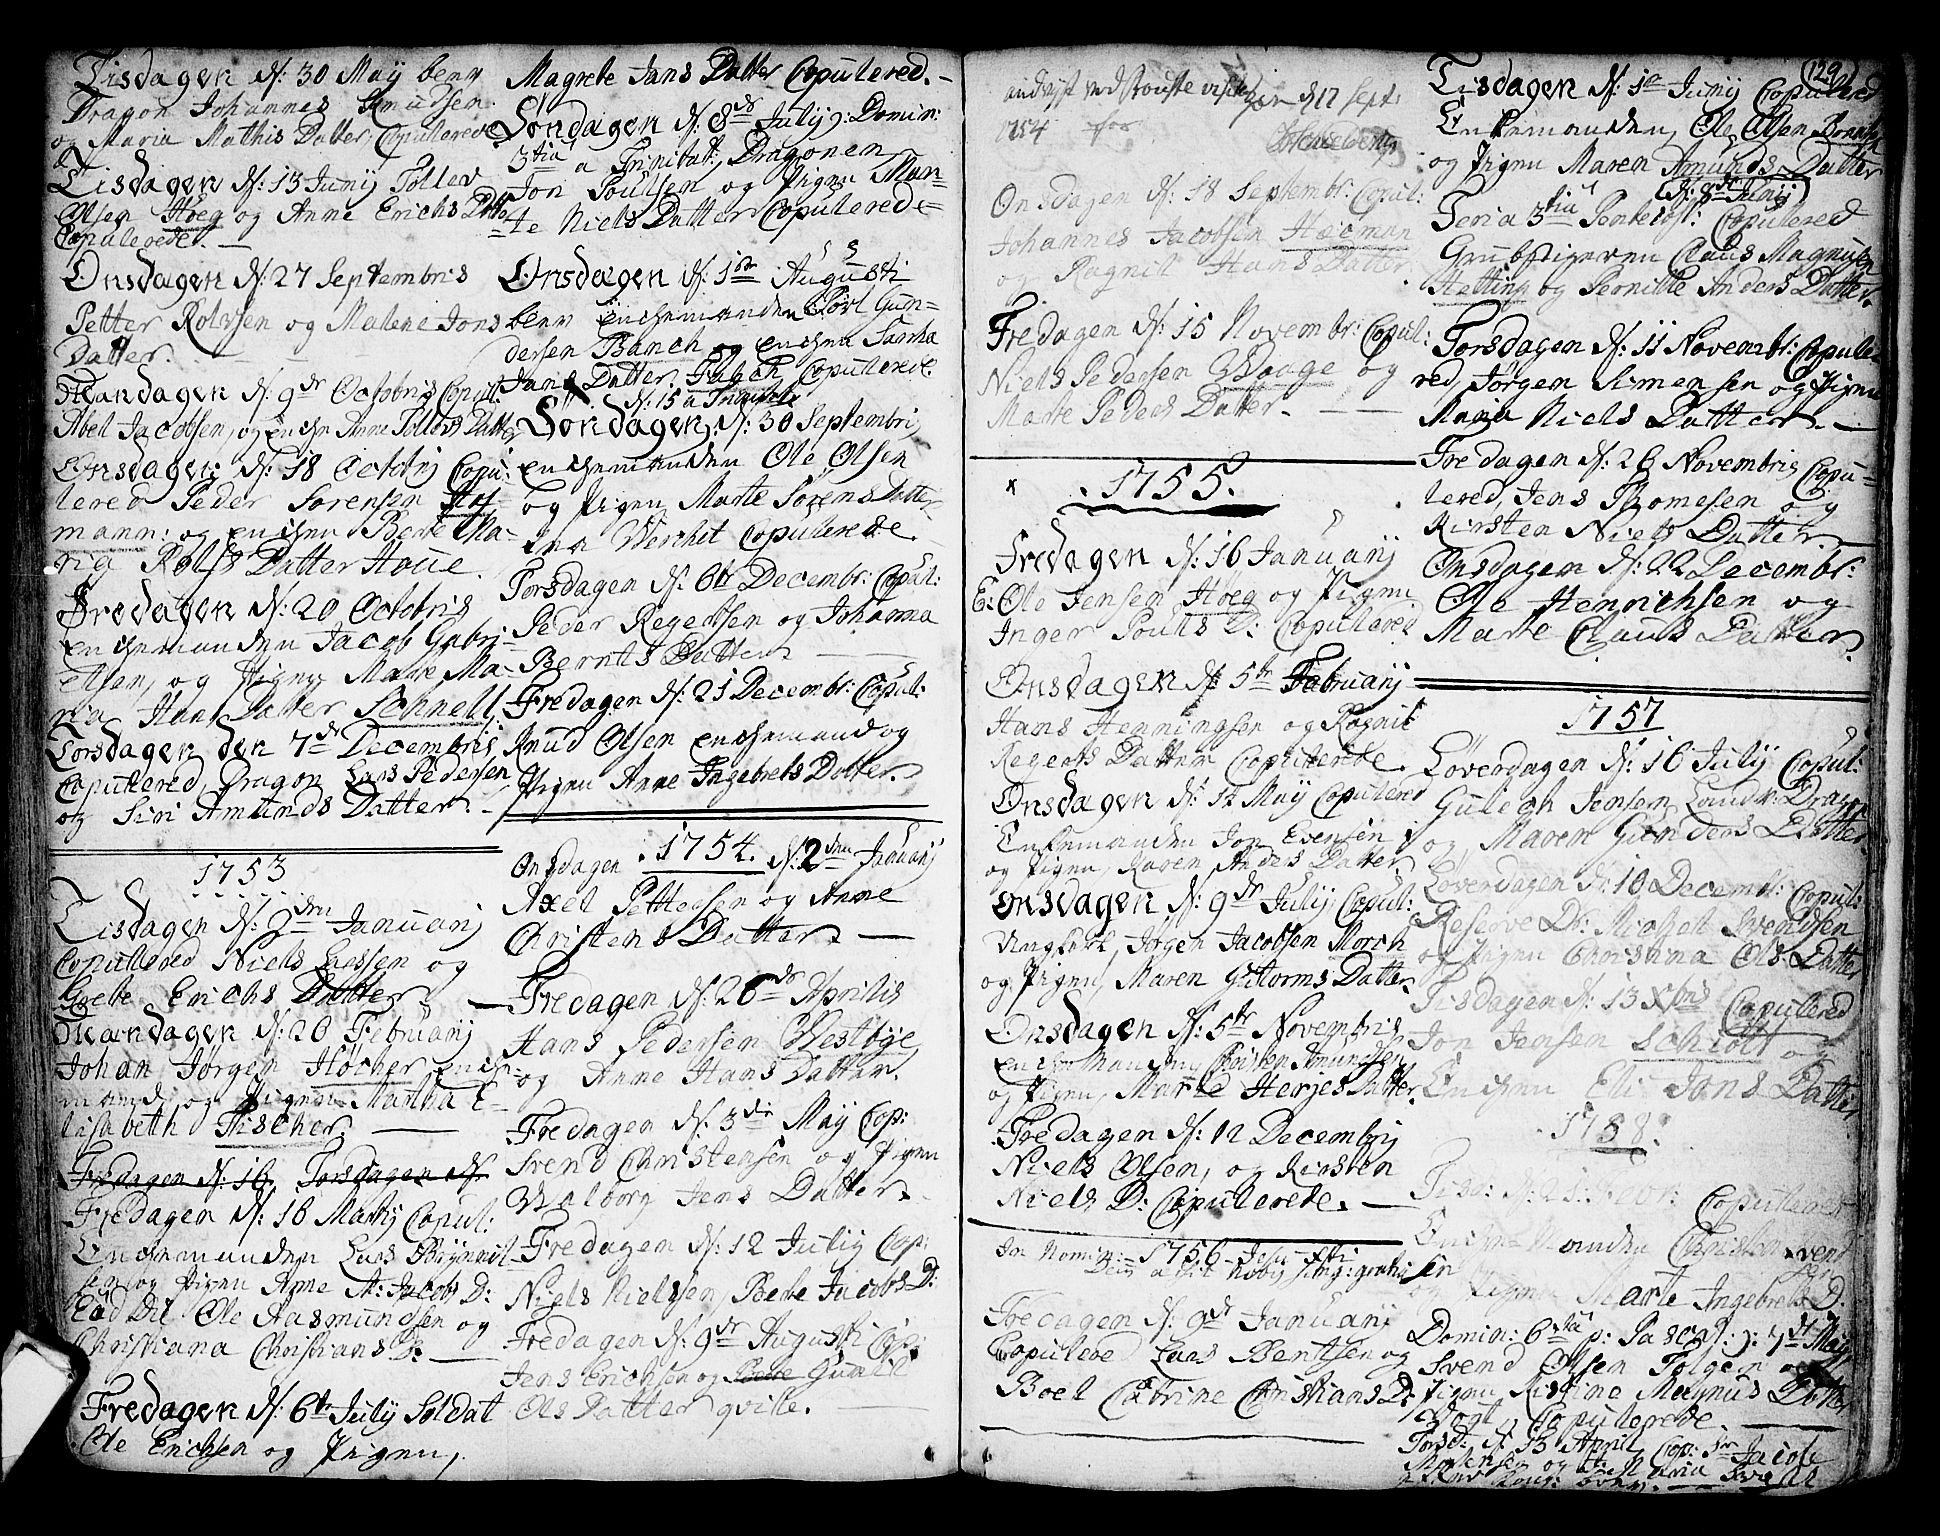 Tisdagen d: 30 Maij benv
Dragon Johannes Amundsen
og Maria Mathis Datter Copulerede
Tisdagen d: 13 Junij Tollev
Olsen Höeg og Anne Erichs Datter
Copulerede. —
Onsdagen d: 27 Septembris
Petter Rolvsen og Malene Jons
Datter. — —
Mandagen d: 9de Octobris Copul:
Abel Jacobsen, og Enchen Anne Tollevs Datter
Onsdagen d: 18 Octobrij Copu-
lered Peder Sorensen
mann: og enchen Berte Ma-
ria Rolfs Datter Houe.
Fredagen d: 20 Octobris
enchemanden Jacob Gabri-
elsen, og Pigen Maren Ma-
ria Hans Datter Schnell
Torsdagen den 7de Decembris
Copulered, Dragon Lars Pedersen
og Siri Amunds Datter. —
1753
Tisdagen d: 2den Januarij
Copulered Niels Larsen og
Grete Erichs Datter —
Mandagen d: 26 Februarij
Johan Jørgen Høcher ench-
mand, og Pigen Martha E-
lisabeth Fischer. —
Fredagen d: 16. Torsdagen d:
Fredagen d: 16 Martij Copul:
Enchemanden Lars Brÿnnil-
sen og Pigen Anne M: Jacobs D:
Eod Die Ole Aasmundsen og
Christiana Christians D: —
Fredagen d: 6te Julij Soldat
Ole Erichsen og Pigen,
Magrete Jans Datter Copulered. —
Søndagen d: 8de Julij: Domin:
3tia a Trinitat: Dragonen
Jon Poulsen og Pigen Mar-
te Niels Datter Copulerede
Onsdagen d: 1ste Augusti
benv enchemanden Povl Gun-
dersen Banch og enchen Sanna
Jans Datter Fasch Copulerede.
D: 15 a Trinitat:
Søndagen d: 30 Septembri
enchemanden Ole Olsen
og Pigen Marte Sorens Datter
Copulerede.
Torsdagen d: 6te Decembr: Copul:
Peder Regertsen og Johanna
Bernts Datter —
Fredagen d: 21 Decembr: Copul:
Knud Olsen enchemand og
Pigen Anne Ingebrets Datter.
Onsdagen 1754. d: 2den Januarij
Axel Pettersen og Anne
Christens Datter. —
Fredagen d: 26de Aprilis
Hans Pedersen Westbÿe
og Anne Hans Datter.
Fredagen d: 3die Maij Cop:
Svend Christensen og Pigen
Walborg Jens Datter.
Fredagen d: 12 Julij Cop:
Niels Nielsen, Berte Jacobs D:
Fredagen d: 9de Augusti Cop:
Jens Erichsen og Berte Gunild
Ols Datter qvitte. —
d 17 Sept:
1754 for
Onsdagen d: 18 Septembr: Copul:
Johannes Jacobsen Hæman
og Ragnil Hans Datter.
Fredagen d: 15 Novembr: Copul:
Niels Pedersen Waage og
Marte Peders Datter. — —
1755.
Fredagen d: 16 Januarij
E: Ole Jensen Höeg og Pigen
Inger Pouls D: Copulered
Onsdagen d: 5te Februarij
Hans Henningsen og Ragnil
Regerts Datter Copulerede.
Onsdagen d: 14 Maij Copulered
Enkemanden Jon Evensen
og Pigen Karen Anders Datter
Onsdagen d: 9de Julij Copul:
Ungkarl, Jørgen Jacobsen Morch
og Pigen, Maren Gstorms Datter.
Onsdagen d: 5te Novembris
enchemanden Christen Amundsen
og Pigen, Marte Herjes Datter.
Fredagen d: 12 Decembrij
Niels Olsen, og Kirsten
Niels D: Copulerede. —
In Nomine 1756 Jesu Xsti
Fredagen d: 9de Januarij
Copulered Lars Bentsen og
Boel Catrine Christians D:
129
Tisdagen d: 1te Junij Copulered
Enkemanden, Ole Olsen
og Pigen Maren Amunds Datter
(d: 8de Junij)
Feria 3tia Pentecost: Copulered
Grubstigeren Claus Magnusen
Hetting og Pernille Anders Datter.
Torsdagen d: 11 Novembr: Copule-
red, Jørgen Simensen og Pigen
Maria Niels Datter. —
Fredagen d: 26 Novembris Copu-
lered, Jens Thomesen og
Kirsten Niels Datter.
Onsdagen d: 22 Decembr:
Ole Henrichsen og
Marte Claus Datter.
1757
Løverdagen d: 16 Julij Copul:
Gulich Jensen Land: Dragon
og Maren Gunders Datter.
Løverdagen d: 10 Decembr: Copul:
Reserve Dr: Michell Svendsen
og Pigen Christina Ols Datter
Tisdagen d: 13 Xbris Copulered
Jon Jensen Schiøtt og
Enchen Eli Jans Datter
1758.
Tisd: d: 21 Febr: Copulered
Enchemanden Christen Svend
sen
og Pigen Marte Ingebrets D.
Domin: 6ta p: Pasch: 7de Maij,
Svend Olsen Folgen og
Pigen Kistine Magnus Datter
Vogt, Copulerede. —
Torsd: d: 13 April Cop: Jacob
Mortensen og Maria